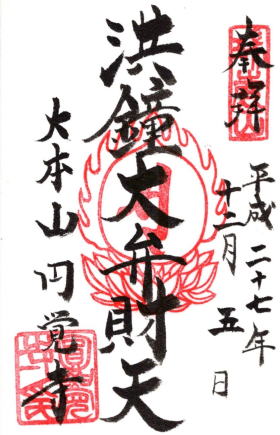 奉拝
平成二十七年
十二月五日
洪鐘大弁財天
大本山円覚寺